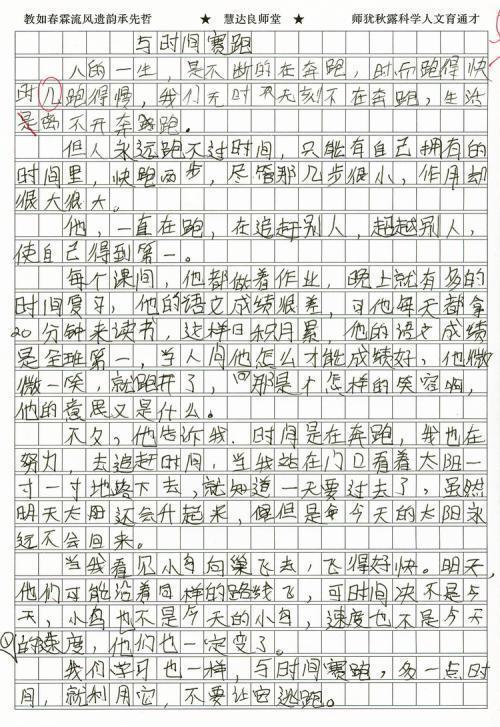 教如春霖流风遗韵承先哲 ★ 慧达良师堂 ★ 师犹秋露科学人文育通才
与时间赛跑
人的一生，是不断的在奔跑，时而跑得快
时几跑得慢，我们无时不无刻不在奔跑，生活
是离不开奔跑。
但人永远跑不过时间，只能在自己拥有的
时间里，快跑两步，尽管那几步很小，作用却
很大很大。
他，一直在跑，在追赶别人，超越别人，
使自己得到第一。
每个课间，他都做着作业，晚上就有多的
时间复习，他的语文成绩很差，可他每天都拿
20分钟来读书，这样日积月累，他的语文成绩
是全班第一，当人问他怎么才能成绩好，他微
微一笑，就跑开了，那是个怎样的笑容啊，
他的意思又是什么。
不久，他告诉我，时间是在奔跑，我也在
努力，去追赶时间，当我站在门口看着太阳一
寸一寸地落下去，就知道一天要过去了，虽然
明天太阳还会升起来，但是今天的太阳永
远不会回来。
当我看见小鸟向巢飞去，飞得好快。明天，
他们可能沿着同样的路线飞，可时间决不是今
天，小鸟也不是今天的小鸟，速度也不是今天
的速度，他们也一定变了。
我们学习也一样，与时间赛跑，多一点时
间，就利用它，不要让它逃跑。